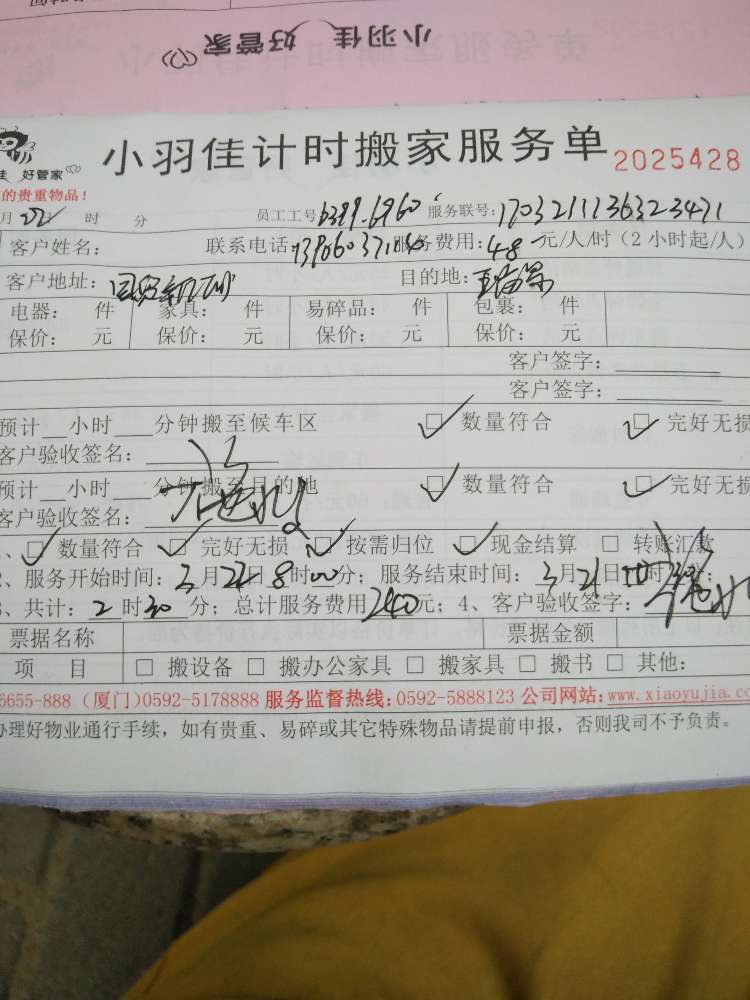 小羽佳 好管家
小羽佳计时搬家服务单 2025428
佳 好管家
的贵重物品!
月22日 时 分 员工工号6399.6960 服务联号:1703211136323471
客户姓名: 联系电话: 服务费用:48 元/人/时(2小时起/人)
客户地址: 目的地:
电器: 件 家具: 件 易碎品: 件 包裹: 件
保价: 元 保价: 元 保价: 元 保价: 元
客户签字:
客户签字:
预计 小时 分钟搬至候车区 ☑ 数量符合 ☑ 完好无损
客户验收签名:
预计 小时 分钟搬至目的地 ☑ 数量符合 ☑ 完好无损
客户验收签名:
、☑ 数量符合 ☑ 完好无损 ☑ 按需归位 ☑ 现金结算 □ 转账汇款
2、服务开始时间:3月22日8时00分;服务结束时间:3月21日 时
3、共计:2时30分;总计服务费用240元;4、客户验收签字:
票据名称 票据金额
项 目 □ 搬设备 □ 搬办公家具 □ 搬家具 □ 搬书 □ 其他:
6655-888(厦门)0592-5178888 服务监督热线:0592-5888123 公司网站:www.xiaoyujia.co
办理好物业通行手续,如有贵重、易碎或其它特殊物品请提前申报,否则我司不予负责。